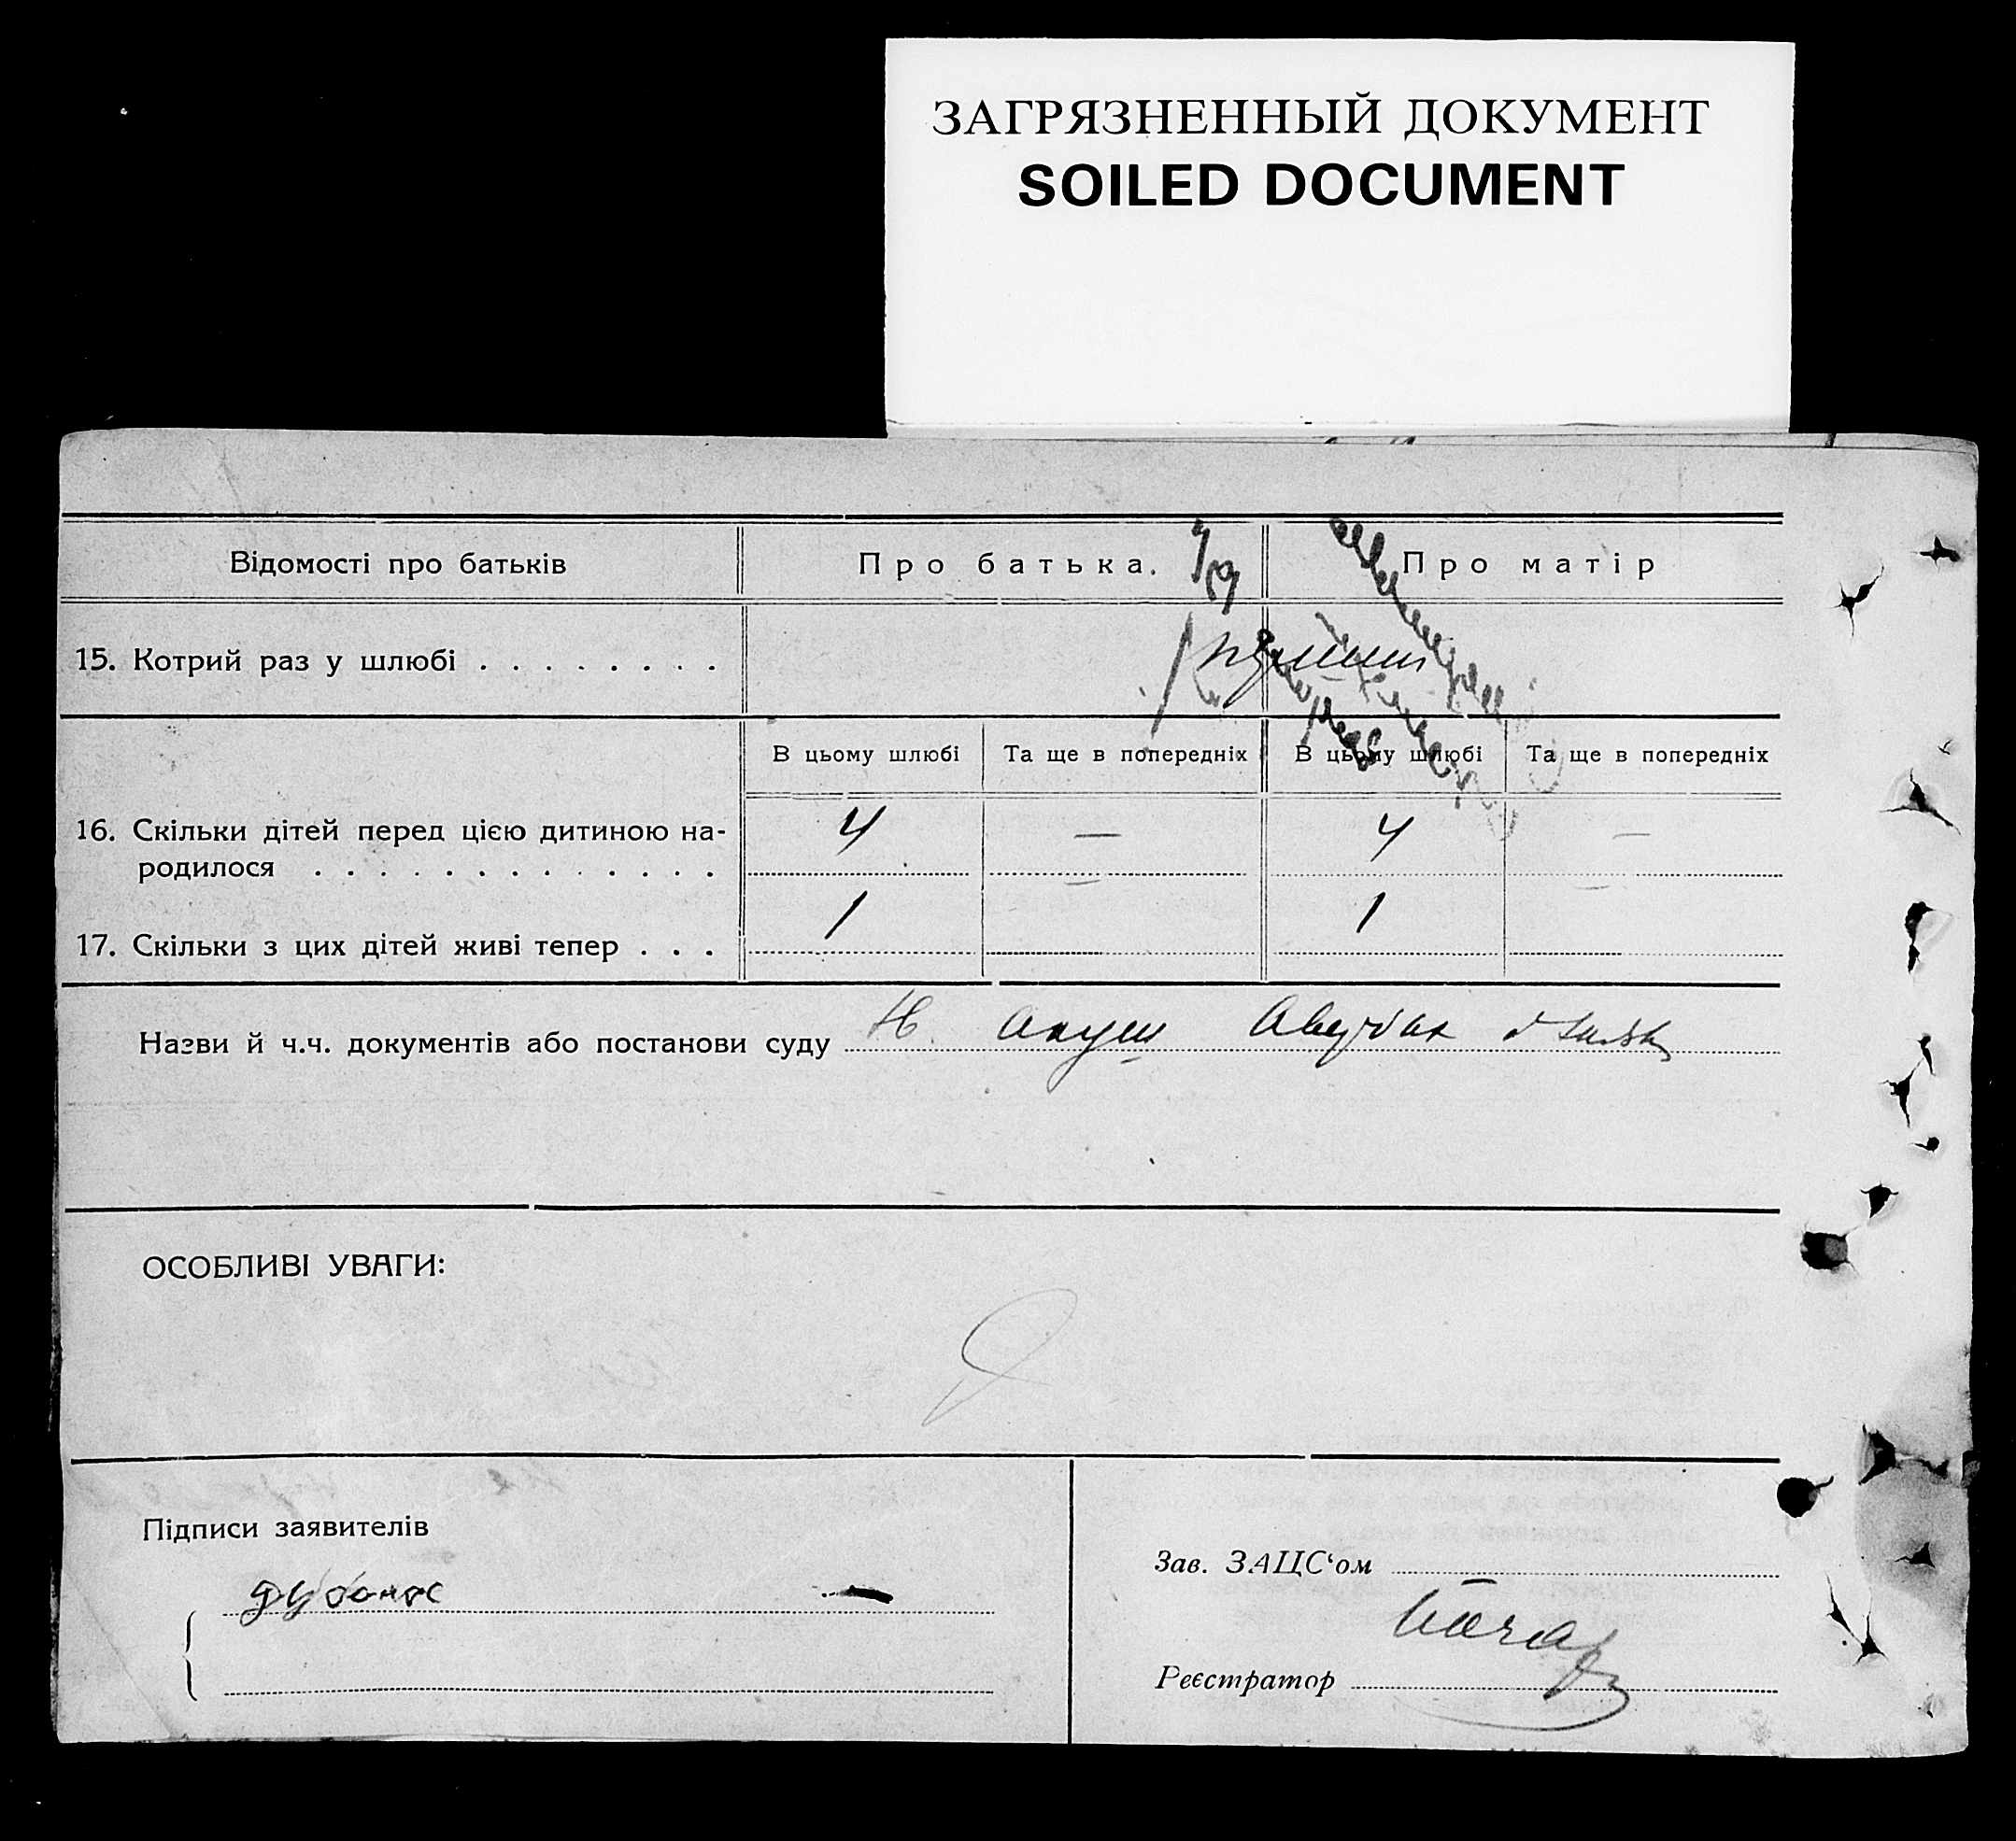 ЗАГРЯЗНЕННЫЙ ДОКУМЕНТ
SOILED DOCUMENT
Відомості про батьків Про батька. Про матір
15. Котрий раз у шлюбі . . . . . . . .
В цьому шлюбі Та ще в попередніх В цьому шлюбі Та ще в попередніх
16. Скільки дітей перед цією дитиною на-
родилося . . . . . . . . . . . . . 4 — 4 —
17. Скільки з цих дітей живі тепер . . . 1 1
Назви й ч.ч. документів або постанови суду
ОСОБЛИВІ УВАГИ:
Підписи заявителів
Зав. ЗАЦС‘ом
Реєстратор